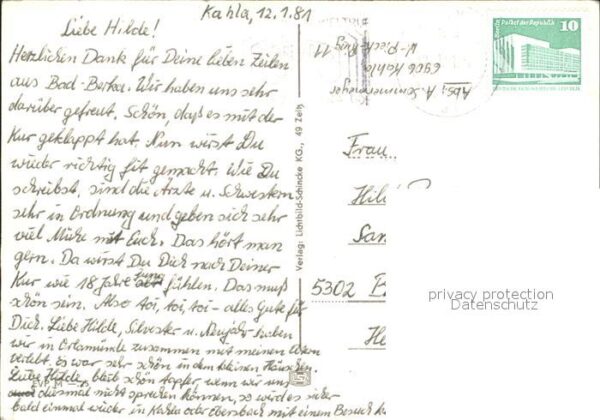 Kahla, 12.1.81
Liebe Hilde!
Herzlichen Dank für Deine lieben Zeilen
aus Bad-Berka. Wir haben uns sehr
darüber gefreut. Schön, daß es mit der
Kur geklappt hat. Nun wirst Du
wieder richtig fit gemacht. Wie Du
schreibst, sind die Ärzte u. Schwestern
sehr in Ordnung und geben sich sehr
viel Mühe mit Euch. Das hört man
gern. Da wirst Du Dich nach Deiner
Kur wie 18 Jahre jung fühlen. Das muß
schön sein. Also toi, toi, toi – alles Gute für
Dich. Liebe Hilde, Silvester u. Neujahr haben
wir in Orlamünde zusammen mit meinen Eltern
verlebt. Es war sehr schön in dem kleinen Häuschen.
Liebe Hilde, bleib schön tapfer, wenn wir uns
diesmal nicht sprechen können, so wird es sicher
bald einmal wieder in Kahla oder
mit einem Besuch
Verlag: Lichtbild-Schincke KG., 49 Zeitz
Abs.: A.
6906 Kahla
W.-Pieck-Ring 11
Berlin, Palast der Republik
10
Frau
Hil
San
5302 B
He
privacy protection
Datenschutz